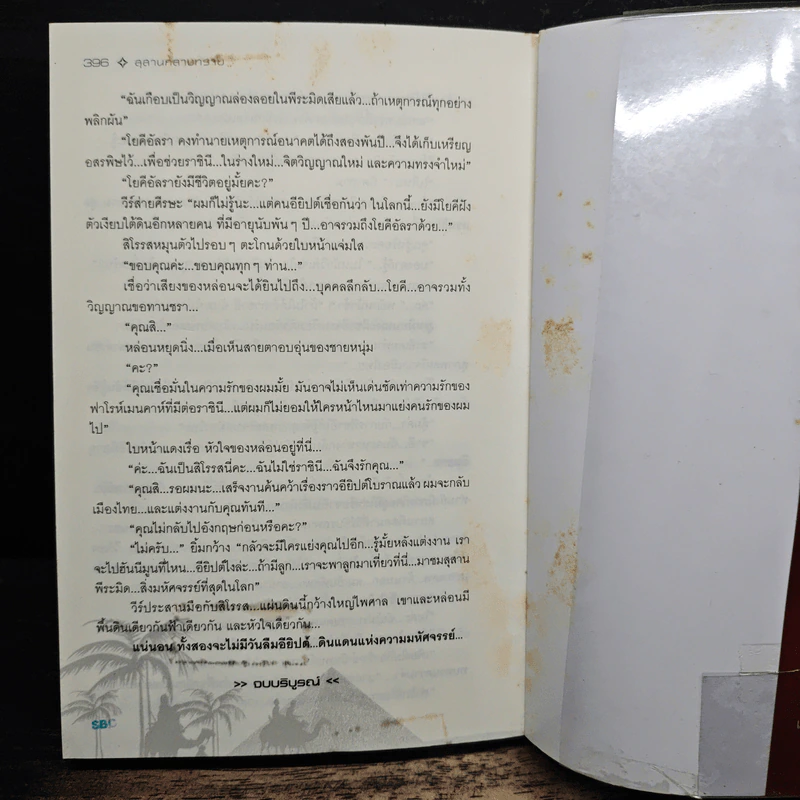 396 ✧ สุสานกลางทราย
“ฉันเกือบเป็นวิญญาณล่องลอยในพีระมิดเสียแล้ว...ถ้าเหตุการณ์ทุกอย่าง
พลิกผัน”
“โยคีอัลรา คงทำนายเหตุการณ์อนาคตได้ถึงสองพันปี...จึงได้เก็บเหรียญ
อสรพิษไว้...เพื่อช่วยราชินี...ในร่างใหม่...จิตวิญญาณใหม่ และความทรงจำใหม่”
“โยคีอัลรายังมีชีวิตอยู่มั้ยคะ?”
วีร์ส่ายศีรษะ “ผมก็ไม่รู้นะ...แต่คนอียิปต์เชื่อกันว่า ในโลกนี้...ยังมีโยคีฝัง
ตัวเงียบใต้ดินอีกหลายคน ที่มีอายุนับพันๆ ปี...อาจรวมถึงโยคีอัลราด้วย...”
สิโรรสหมุนตัวไปรอบๆ ตะโกนด้วยใบหน้าแจ่มใส
“ขอบคุณค่ะ...ขอบคุณทุกๆ ท่าน...”
เชื่อว่าเสียงของหล่อนจะได้ยินไปถึง...บุคคลลึกลับ...โยคี...อาจรวมทั้ง
วิญญาณขอทานชรา...
“คุณสิ...”
หล่อนหยุดนิ่ง...เมื่อเห็นสายตาอบอุ่นของชายหนุ่ม
“คะ?”
“คุณเชื่อมั่นในความรักของผมมั้ย มันอาจไม่เห็นเด่นชัดเท่าความรักของ
ฟาโรห์เมนคาห์ที่มีต่อราชินี...แต่ผมก็ไม่ยอมให้ใครหน้าไหนมาแย่งคนรักของผม
ไป”
ใบหน้าแดงเรื่อ หัวใจของหล่อนอยู่ที่นี่...
“ค่ะ...ฉันเป็นสิโรรสนี่คะ...ฉันไม่ใช่ราชินี...ฉันจึงรักคุณ...”
“คุณสิ...รอผมนะ...เสร็จงานค้นคว้าเรื่องราวอียิปต์โบราณแล้ว ผมจะกลับ
เมืองไทย...และแต่งงานกับคุณทันที...”
“คุณไม่กลับไปอังกฤษก่อนหรือคะ?”
“ไม่ครับ...” ยิ้มกว้าง “กลัวจะมีใครแย่งคุณไปอีก...รู้มั้ยหลังแต่งงาน เรา
จะไปฮันนีมูนที่ไหน...อียิปต์ไงล่ะ...ถ้ามีลูก...เราจะพาลูกมาเที่ยวที่นี่...มาชมสุสาน
พีระมิด...สิ่งมหัศจรรย์ที่สุดในโลก”
วีร์ประสานมือกับสิโรรส...แผ่นดินนี้กว้างใหญ่ไพศาล เขาและหล่อนมี
พื้นดินเดียวกันฟ้าเดียวกัน และหัวใจเดียวกัน...
แน่นอน ทั้งสองจะไม่มีวันลืมอียิปต์...ดินแดนแห่งความมหัศจรรย์...
>> จบบริบูรณ์ <<
SBC